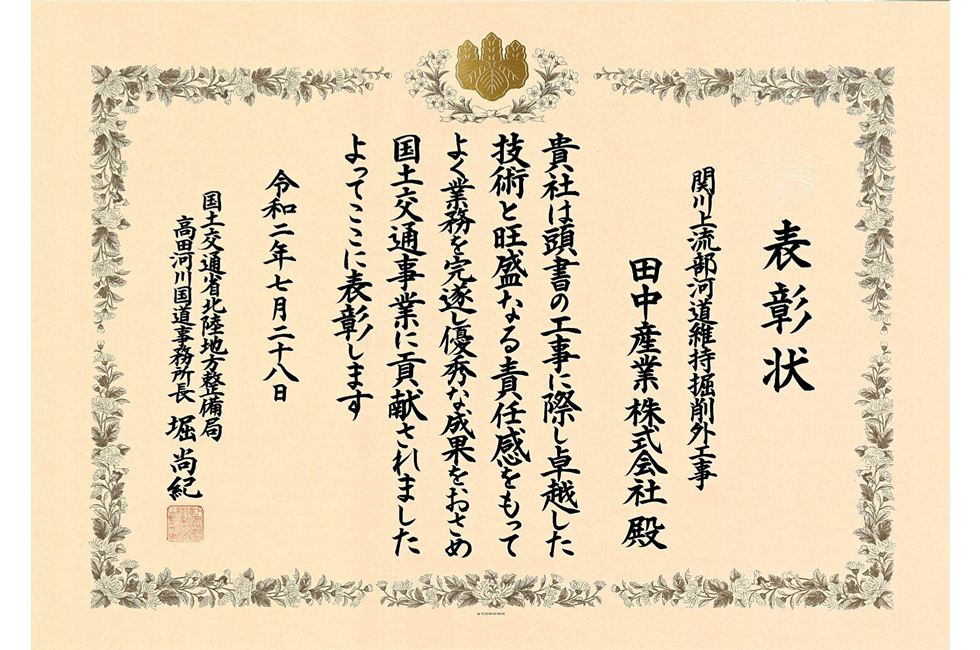 表彰状
関川上流部河道維持掘削外工事
田中産業株式会社 殿
貴社は頭書の工事に際し卓越した
技術と旺盛なる責任感をもって
よく業務を完遂し優秀な成果をおさめ
国土交通事業に貢献されました
よってここに表彰します
令和二年七月二十八日
国土交通省北陸地方整備局
高田河川国道事務所長 堀 尚紀